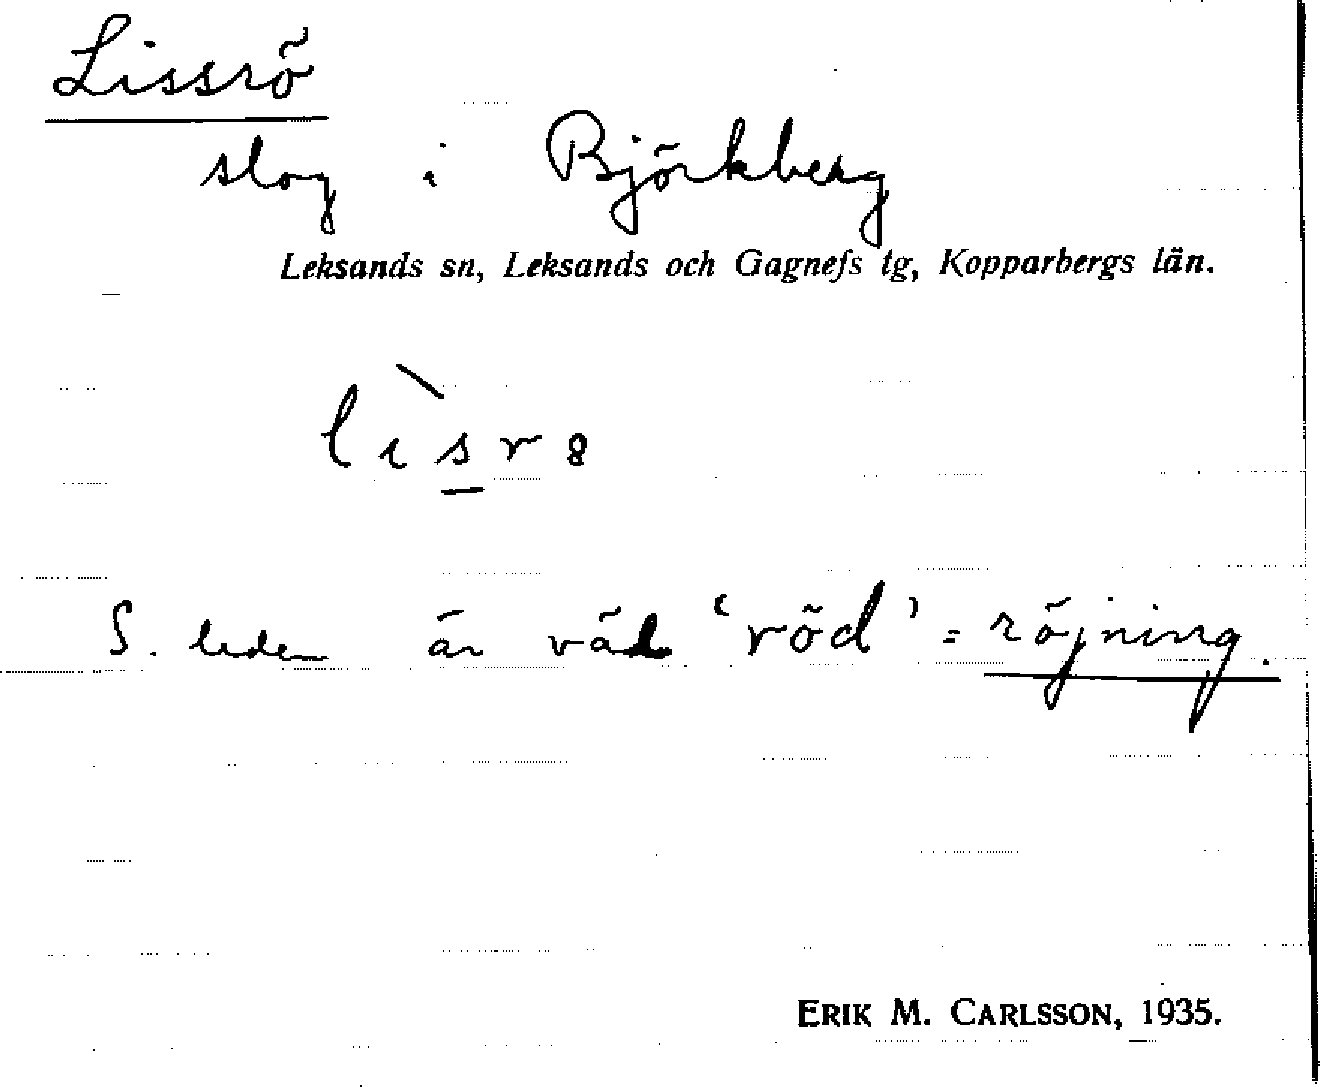 Lissrö
slog i Björkberg
Leksands sn, Leksands och Gagnefs tg, Kopparbergs län.
lìsr8
S. leden är väl ‘röd’ = röjning.
ERIK M. CARLSSON, 1935.